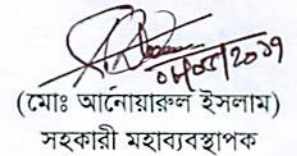 (মোঃ আনোয়ারুল ইসলাম)
সহকারী মহাব্যবস্থাপক